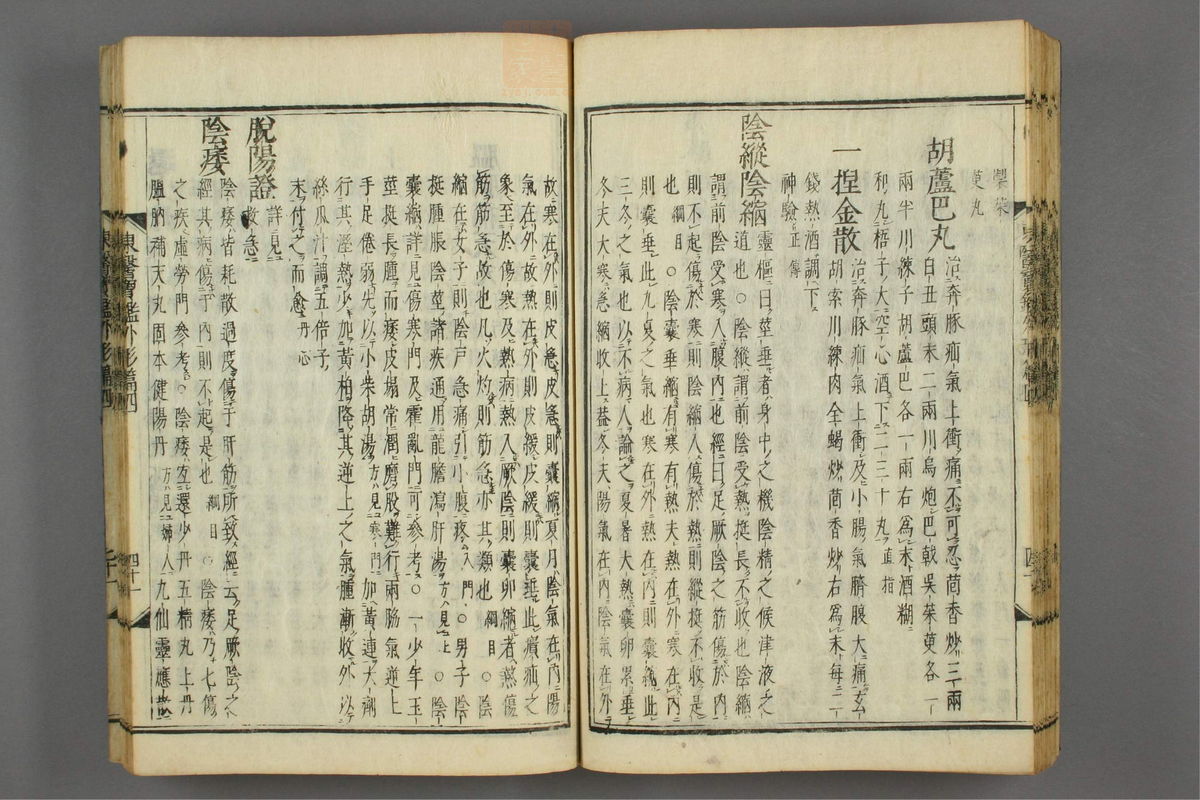 胡蘆巴丸
治奔豚疝氣上衝痛不可忍茴香炒三兩
白丑頭末二兩川烏炮巴戟吳茱萸各一
兩半川練子胡蘆巴各一兩右爲末酒糊
和丸梧子大空心酒下二三十丸直指
一捏金散
治奔豚疝氣上衝及小腸氣臍腹大痛玄
胡索川練肉全蝎炒茴香炒右爲末每二
錢熱酒調下
神驗正傳
陰縱陰縮
靈樞曰莖垂者身中之機陰精之候津液之
道也○陰縱謂前陰受熱挺長不收也陰縮
謂前陰受寒入腹內也經曰足厥陰之筋傷於內
則不起傷於寒則陰縮入傷於熱則縱挺不收是
也綱目○陰囊垂縮有寒有熱夫熱在外寒在內
則囊垂此九夏之氣也寒在外熱在內則囊縮此
三冬之氣也以不病人論之夏暑大熱囊卵累垂
冬天大寒急縮收上蓋冬天陽氣在內陰氣在外
故寒在外則皮急皮急則囊縮夏月陰氣在內陽
氣在外故熱在外則皮緩皮緩則囊垂此㿗疝之
象至於傷寒及熱病熱入厥陰則囊卵縮者熱傷
筋筋急故也凡火灼則筋急亦其類也綱目○陰
縮在女子則陰戶急痛引小腹疼入門○男子陰
挺腫脹陰莖諸疾通用龍膽瀉肝湯方見上○陰
囊縮詳見寒門及霍亂門可參考○一少年玉
莖挺長腫而痿皮塌常潤磨股難行兩脇氣逆上
手足倦弱先以小柴胡湯方見寒門加黃連大劑
行其濕熱少加黃柏降其逆上之氣腫漸收外以
絲瓜汁調五倍子
末付之而愈丹心
脫陽證
詳見
救急
陰痿
陰痿皆耗散過度傷于肝筋所致經云足厥陰之
經其病傷于內則不起是也綱目○陰痿乃七傷
之疾虛勞門參考○陰痿宜還少丹五精丸上丹
膃肭補天丸固本健陽丹方見婦人九仙靈應散
東醫寶鑑外形篇四
四十一